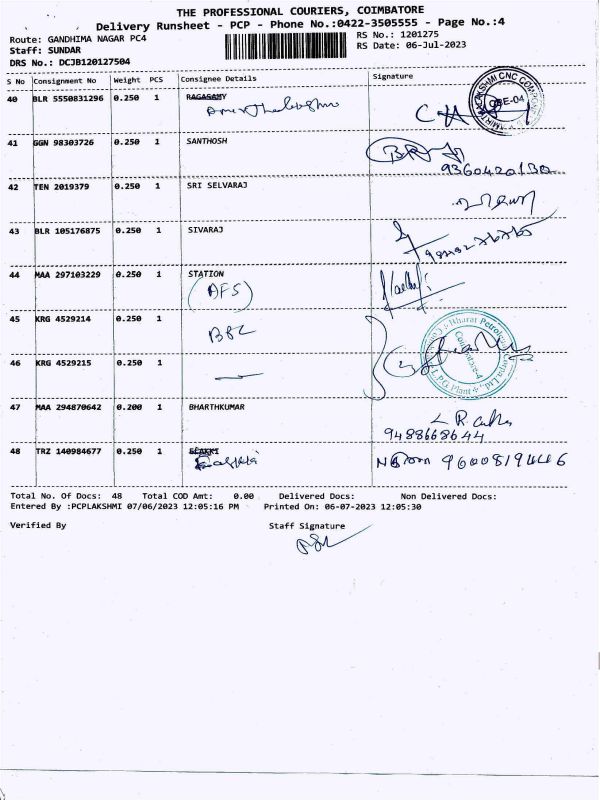 THE PROFESSIONAL COURIERS, COIMBATORE
Delivery Runsheet - PCP - Phone No.:0422-3505555 - Page No.:4
Route: GANDHIMA NAGAR PC4
RS No.: 1201275
Staff: SUNDAR
RS Date: 06-Jul-2023
DRS No.: DCJB120127504
S No Consignment No Weight PCS Consignee Details Signature
40 BLR 5550831296 0.250 1 RAGASAMY
CBE-04
41 GGN 98303726 0.250 1 SANTHOSH
9360420130
42 TEN 2019379 0.250 1 SRI SELVARAJ
43 BLR 105176875 0.250 1 SIVARAJ
44 MAA 297103229 0.250 1 STATION
(AFS)
45 KRG 4529214 0.250 1
Bharat Petroleum
Coimbatore-4
L.P.G. Plant
46 KRG 4529215 0.250 1
47 MAA 294870642 0.200 1 BHARTHKUMAR
9488668644
48 TRZ 140984677 0.250 1 ELAKKI
Total No. Of Docs: 48 Total COD Amt: 0.00 Delivered Docs: Non Delivered Docs:
Entered By :PCPLAKSHMI 07/06/2023 12:05:16 PM Printed On: 06-07-2023 12:05:30
Verified By Staff Signature